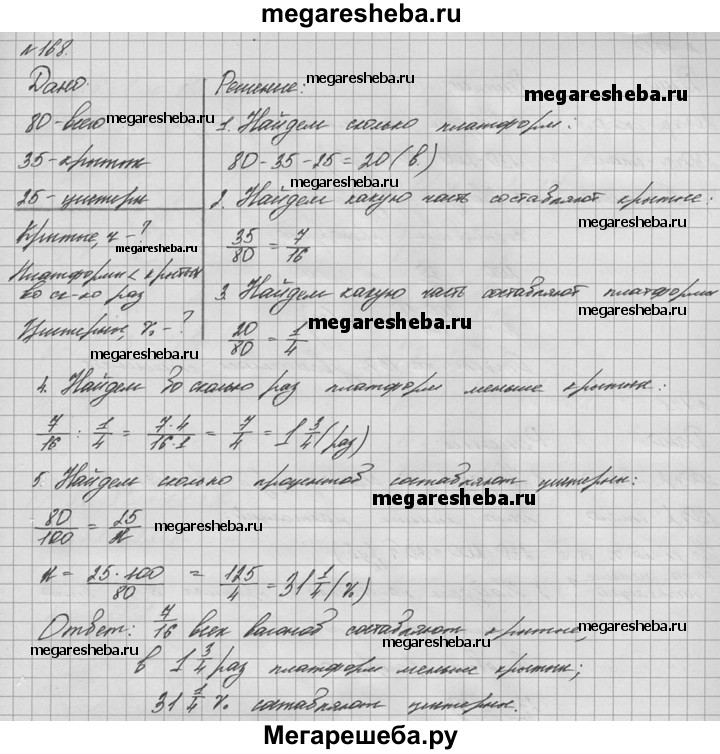 megaresheba.ru
№168.
Дано:
80-всего
35-крытых
25-цистерн
Крытые, ч-?
Платформ < крытых
во ск-ко раз
Цистерны, % - ?
megaresheba.ru
Решение:
megaresheba.ru
megaresheba.ru
1. Найдем сколько платформ:
megaresheba.ru
80-35-25=20(в.)
megaresheba.ru
2. Найдем какую часть составляют крытые:
megaresheba.ru
35/80 = 7/16
megaresheba.ru
3. Найдем какую часть составляют платформы
megaresheba.ru
20/80 = 1/4
megaresheba.ru
megaresheba.ru
4. Найдем во сколько раз платформ меньше крытых:
7/16 : 1/4 = 7·4/16·1 = 7/4 = 1 3/4 (раз)
megaresheba.ru
5. Найдем сколько процентов составляют цистерны:
megaresheba.ru
80/100 = 25/x
megaresheba.ru
x = 25·100/80 = 125/4 = 31 1/4 (%)
megaresheba.ru
Ответ: 7/16 всех вагонов составляют крытые,
megaresheba.ru
megaresheba.ru
в 1 3/4 раз платформ меньше крытых;
megaresheba.ru
31 1/4 % составляют цистерны.
megaresheba.ru
Мегарешеба.ру